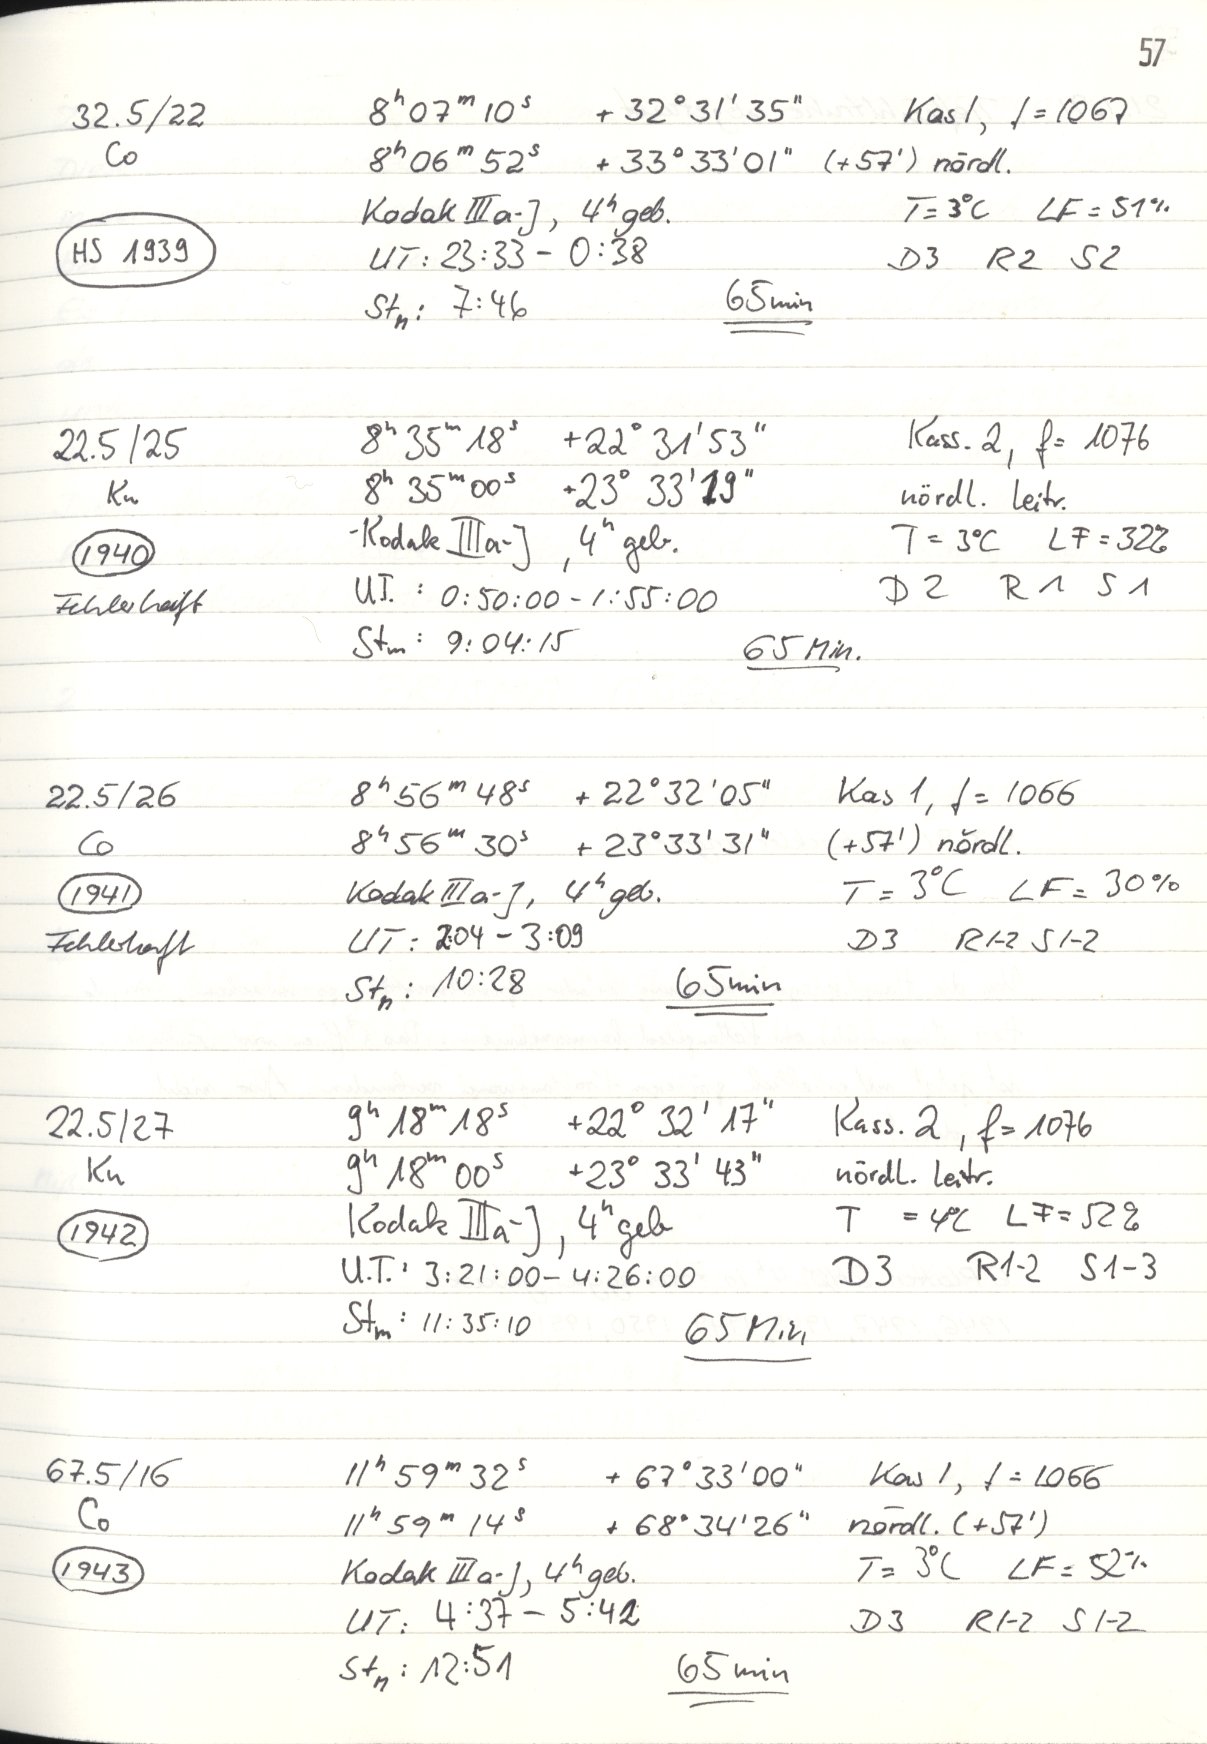 57
32.5/22 8ʰ07ᵐ10ˢ +32°31'35" Kas1, f=1067
Co 8ʰ06ᵐ52ˢ +33°33'01" (+57') nördl.
Kodak IIIa-J, 4ʰ geb. T=3°C LF=51%
HS 1939 UT: 23:33 - 0:38 D3 R2 S2
Stₙ: 7:46 65min
22.5/25 8ʰ35ᵐ18ˢ +22°31'53" Kass. 2, f=1076
Kn 8ʰ35ᵐ00ˢ +23°33'19" nördl. Leitr.
1940 -Kodak IIIa-J, 4ʰ geb. T=3°C LF=32%
Fehlerhaft UT.: 0:50:00-1:55:00 D2 R1 S1
Stₘ: 9:04:15 65 Min.
22.5/26 8ʰ56ᵐ48ˢ +22°32'05" Kas 1, f=1066
Co 8ʰ56ᵐ30ˢ +23°33'31" (+57') nördl.
1941 Kodak IIIa-J, 4ʰ geb. T=3°C LF=30%
Fehlerhaft UT: 2:04 - 3:09 D3 R1-2 S1-2
Stₙ: 10:28 65min
22.5/27 9ʰ18ᵐ18ˢ +22°32'17" Kass. 2, f=1076
Kn 9ʰ18ᵐ00ˢ +23°33'43" nördl. Leitr.
1942 Kodak IIIa-J, 4ʰ geb T =4°C LF=52%
U.T.: 3:21:00-4:26:00 D3 R1-2 S1-3
Stₘ: 11:35:10 65 Min
67.5/16 11ʰ59ᵐ32ˢ +67°33'00" Kas 1, f=1066
Co 11ʰ59ᵐ14ˢ +68°34'26" nördl. (+57')
1943 Kodak IIIa-J, 4ʰ geb. T=3°C LF=52%
UT: 4:37 - 5:42 D3 R1-2 S1-2
Stₙ: 12:51 65min